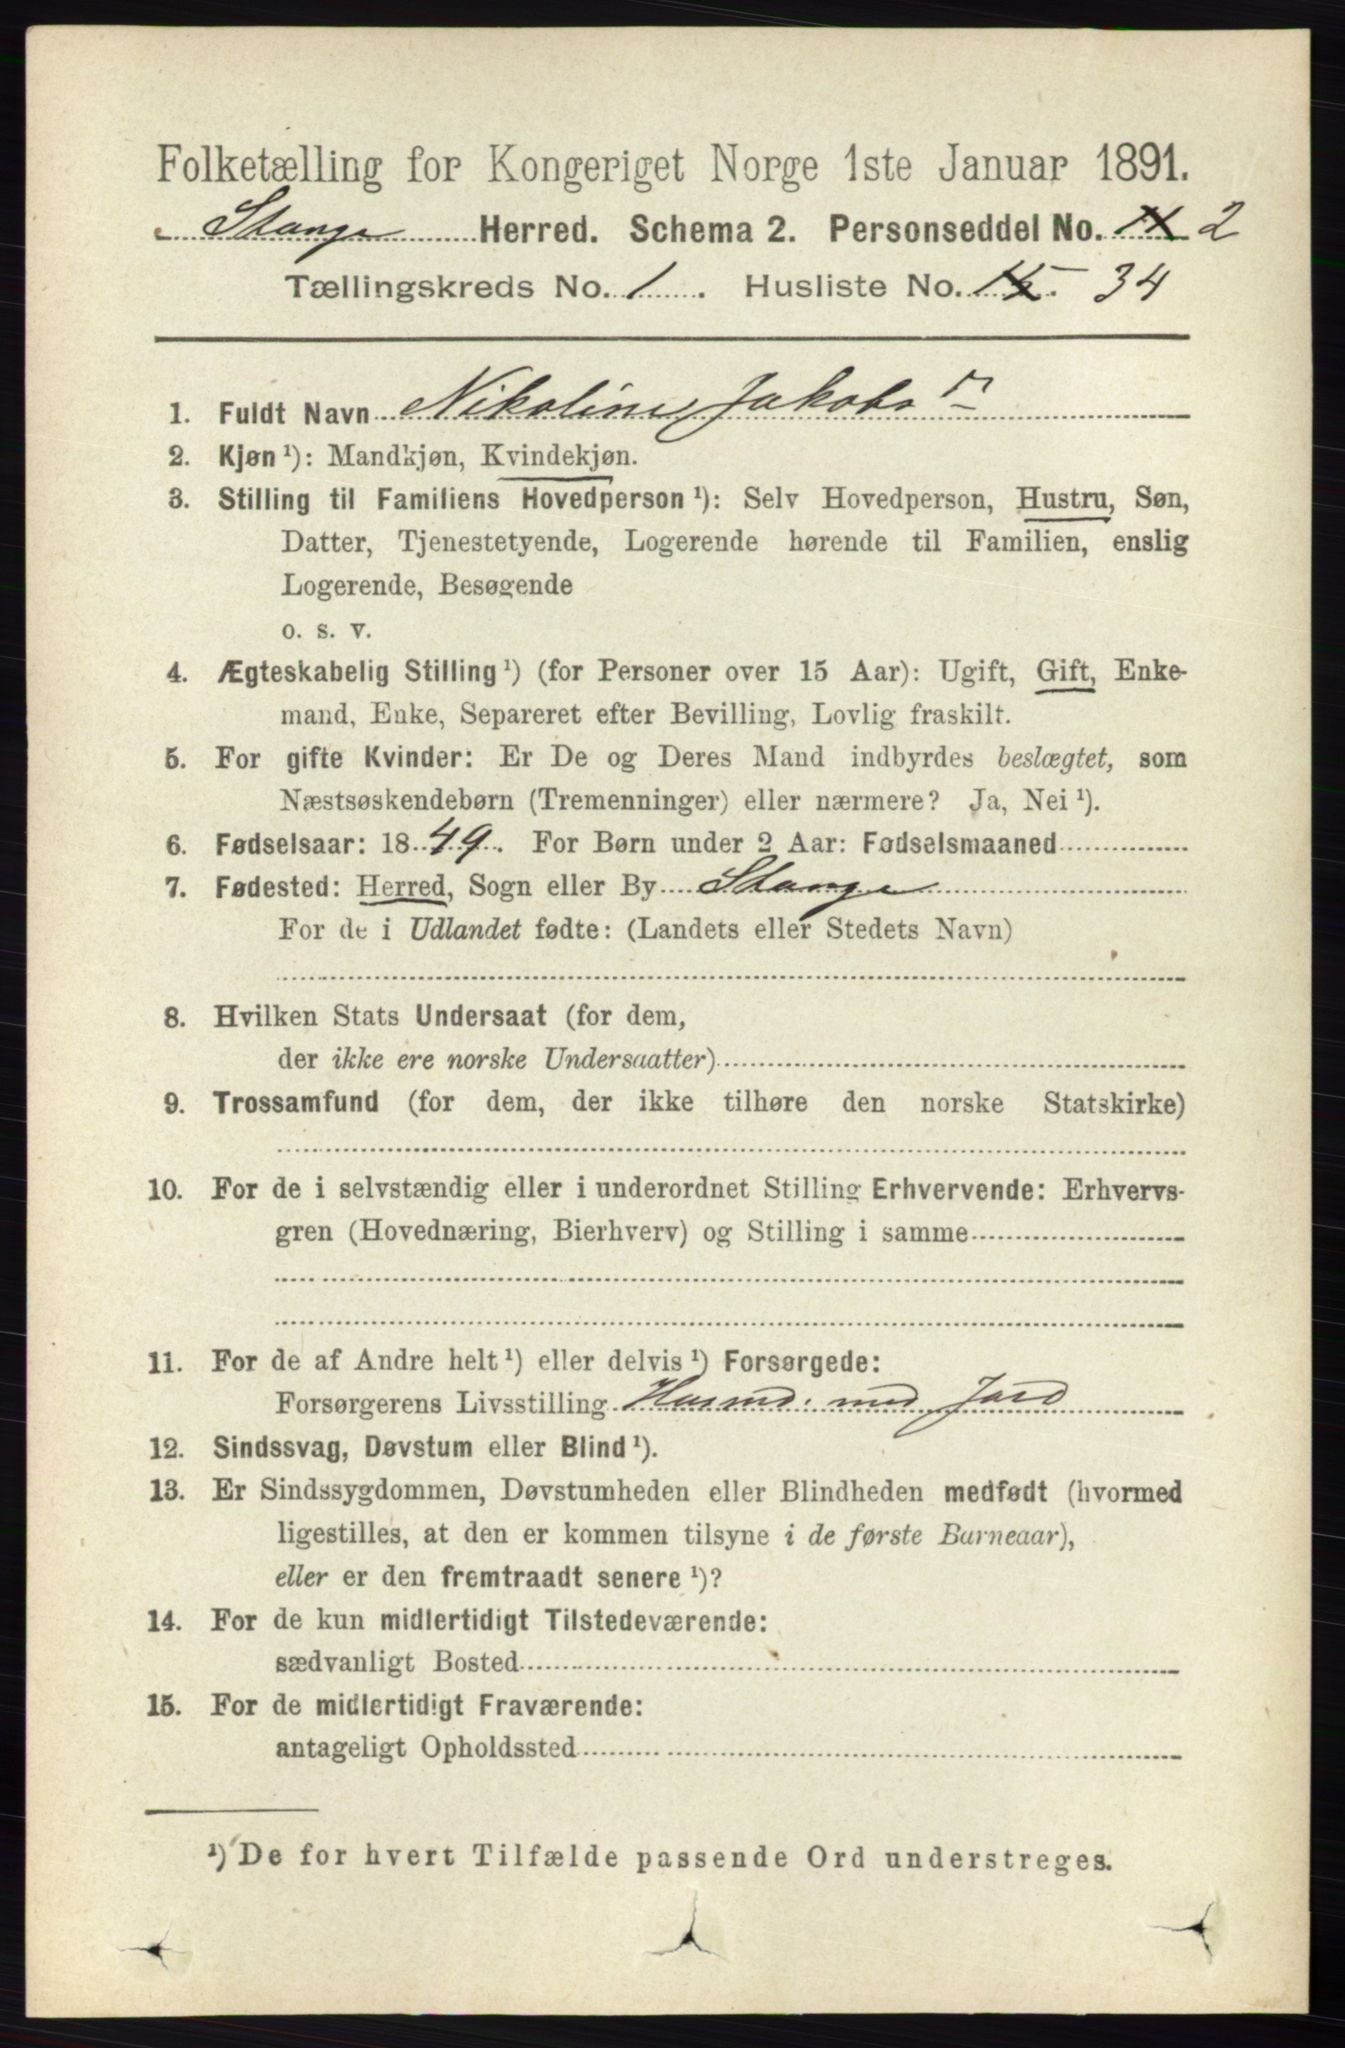 Folketælling for Kongeriget Norge 1ste Januar 1891.
Stange Herred. Schema 2. Personseddel No. 2
Tællingskreds No. 1. Husliste No. 34
1. Fuldt Navn Nikoline Jakobsn
2. Kjøn ¹): Mandkjøn, Kvindekjøn.
3. Stilling til Familiens Hovedperson ¹): Selv Hovedperson, Hustru, Søn,
Datter, Tjenestetyende, Logerende hørende til Familien, enslig
Logerende, Besøgende
o. s. v.
4. Ægteskabelig Stilling ¹) (for Personer over 15 Aar): Ugift, Gift, Enke-
mand, Enke, Separeret efter Bevilling, Lovlig fraskilt.
5. For gifte Kvinder: Er De og Deres Mand indbyrdes beslægtet, som
Næstsøskendebørn (Tremenninger) eller nærmere? Ja, Nei ¹).
6. Fødselsaar: 1849. For Børn under 2 Aar: Fødselsmaaned
7. Fødested: Herred, Sogn eller By Stange
For de i Udlandet fødte: (Landets eller Stedets Navn)
8. Hvilken Stats Undersaat (for dem,
der ikke ere norske Undersaatter)
9. Trossamfund (for dem, der ikke tilhøre den norske Statskirke)
10. For de i selvstændig eller i underordnet Stilling Erhvervende: Erhvervs-
gren (Hovednæring, Bierhverv) og Stilling i samme
11. For de af Andre helt ¹) eller delvis ¹) Forsørgede:
Forsørgerens Livsstilling Husmd. med Jord
12. Sindssvag, Døvstum eller Blind ¹).
13. Er Sindssygdommen, Døvstumheden eller Blindheden medfødt (hvormed
ligestilles, at den er kommen tilsyne i de første Barneaar),
eller er den fremtraadt senere ¹)?
14. For de kun midlertidigt Tilstedeværende:
sædvanligt Bosted
15. For de midlertidigt Fraværende:
antageligt Opholdssted
¹) De for hvert Tilfælde passende Ord understreges.